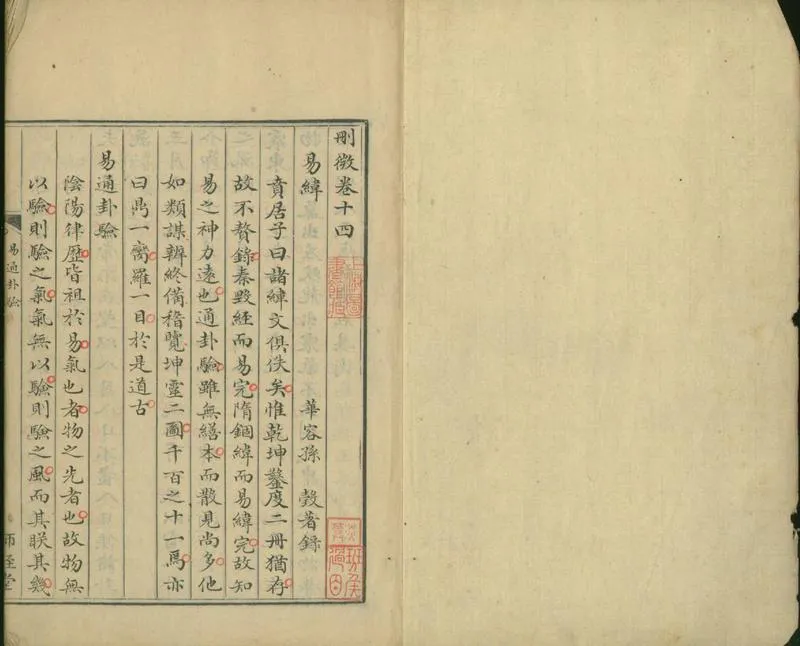 刪微卷十四
易緯
華容孫瑴著錄
賁居子曰諸緯文俱佚矣惟乾坤鑿度二冊猶存
故不贅錄秦毀經而易完隋錮緯而易緯完故知
易之神力遠也通卦驗雖無繕本而散見尚多他
如類謀辨終備稽覽坤靈二圖千百之十一焉亦
曰鼎一臠羅一目於是道古
易通卦驗
陰陽律歷皆祖於易氣也者物之先者也故物無
以驗則驗之氣氣無以驗則驗之風而其眹其幾
易通卦驗